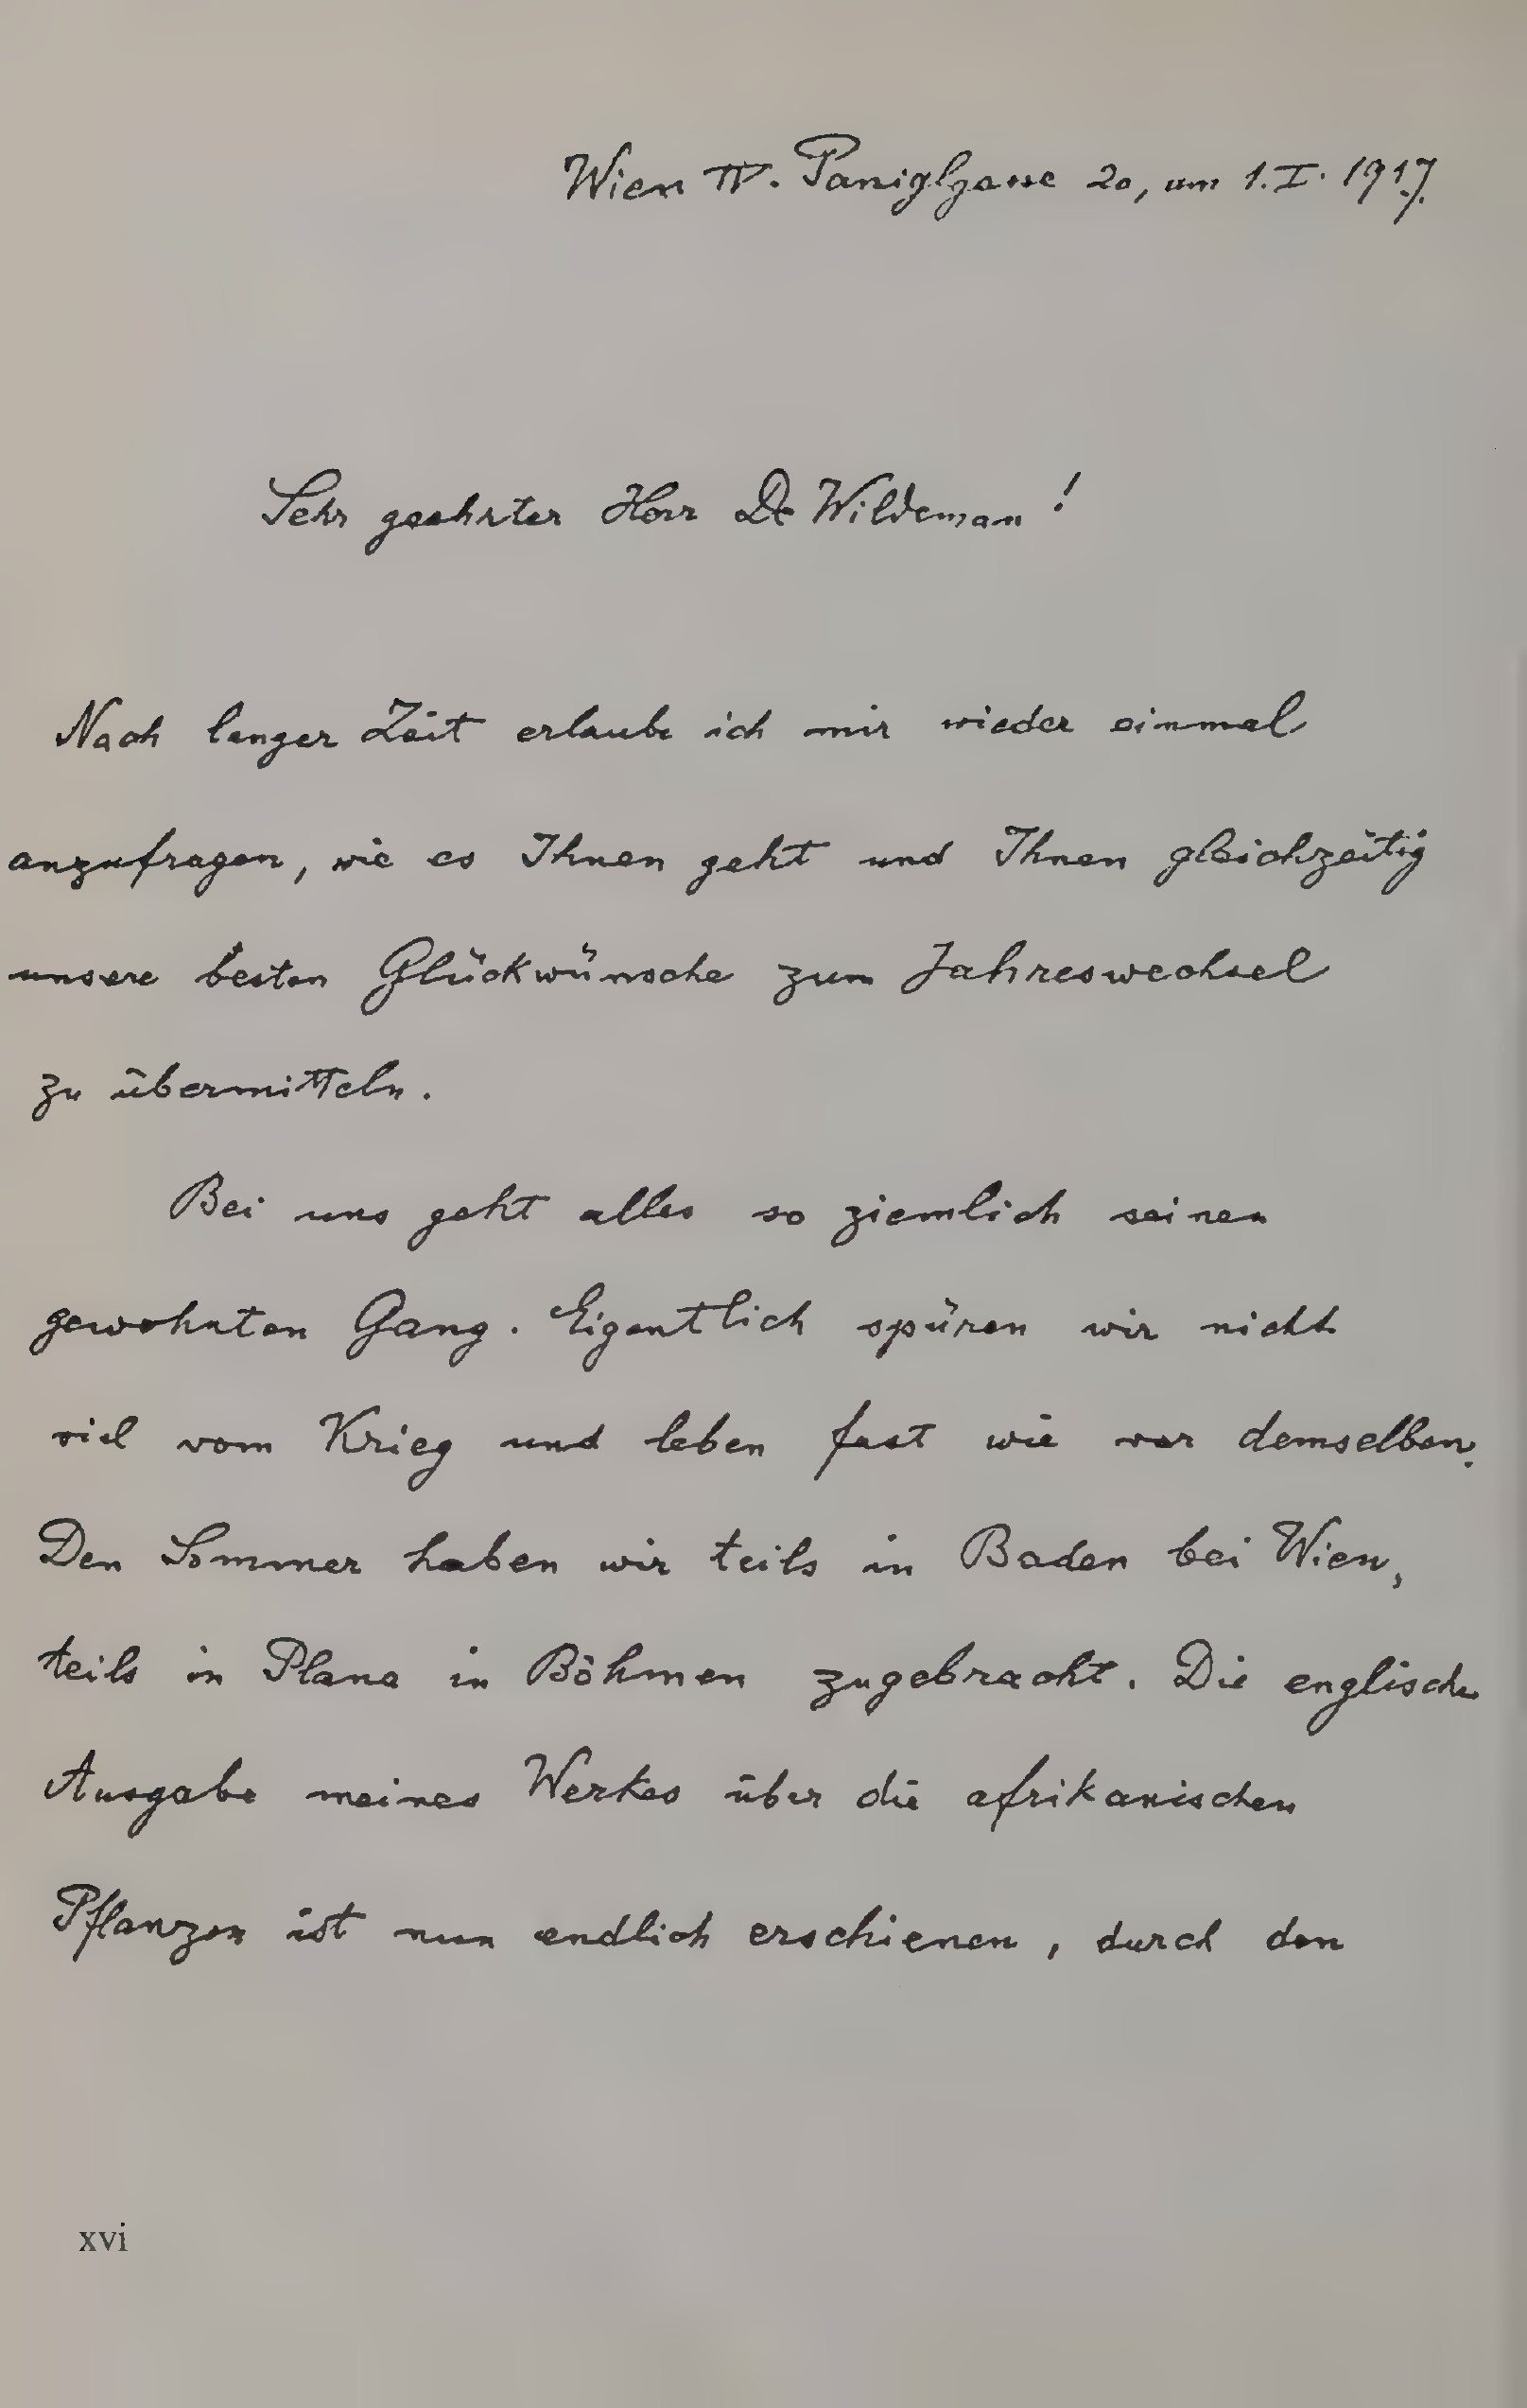 Wien IV. Paniglgasse 20, am 1. I. 1917.
Sehr geehrter Herr De Wildeman!
Nach langer Zeit erlaube ich mir wieder einmal
anzufragen, wie es Ihnen geht und Ihnen gleichzeitig
unsere besten Glückwünsche zum Jahreswechsel
zu übermitteln.
Bei uns geht alles so ziemlich seinen
gewohnten Gang. Eigentlich spüren wir nicht
viel vom Krieg und leben fast wie vor demselben.
Den Sommer haben wir teils in Baden bei Wien,
teils in Plana in Böhmen zugebracht. Die englische
Ausgabe meines Werkes über die afrikanischen
Pflanzen ist nun endlich erschienen, durch den
xvi